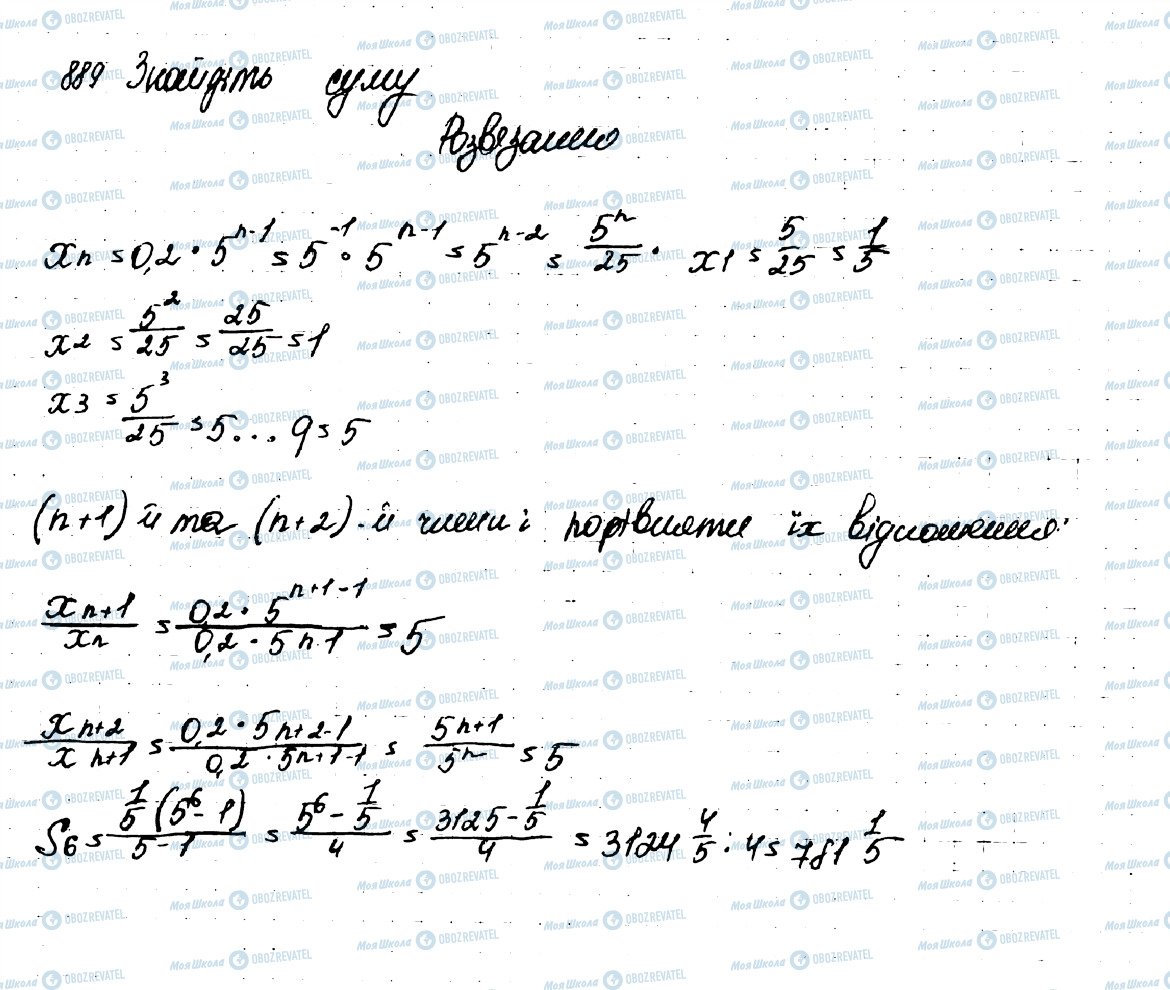 889 Знайдіть суму
Розв'язання
xn = 0,2 · 5^(n-1) = 5^(-1) · 5^(n-1) = 5^(n-2) = 5^n/25. x1 = 5/25 = 1/5
x2 = 5^2/25 = 25/25 = 1
x3 = 5^3/25 = 5... q = 5
(n+1) й та (n+2)-й члени і порівняти їх відношення:
x n+1/xn = 0,2 · 5^(n+1-1)/0,2 · 5 n-1 = 5
x n+2/x n+1 = 0,2 · 5 n+2-1/0,2 · 5 n+1-1 = 5 n+1/5^n = 5
S6 = 1/5 (5^6 - 1)/5-1 = 5^6 - 1/5/4 = 3125 - 1/5/4 = 3124 4/5 : 4 = 781 1/5
Моя Школа OBOZREVATEL